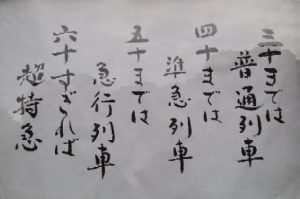 三十までは
普通列車
四十までは
準急列車
五十までは
急行列車
六十すぎれば
超特急